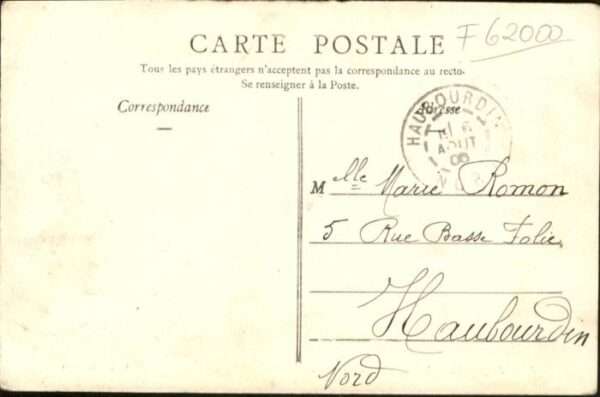 CARTE POSTALE
F 62000
Tous les pays étrangers n'acceptent pas la correspondance au recto.
Se renseigner à la Poste.
Correspondance
Adresse
HAUBOURDIN
AOUT
Mlle Marie Romon
5 Rue Basse Folie
Haubourdin
Nord